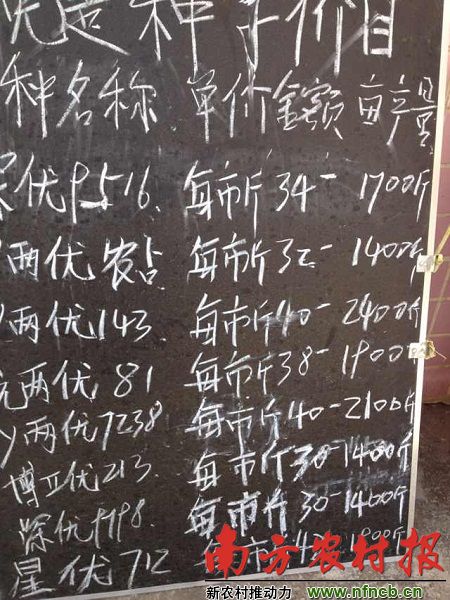 优选种子价目
种名称 单价金额 亩产量
深优9516. 每市斤34- 1700斤
两优农占 每市斤32- 1400斤
两优143. 每市斤40- 2400斤
两优81 每市斤38- 1900斤
Y两优7238 每市斤40- 2100斤
博Ⅱ优213. 每市斤30- 1400斤
深优9798. 每市斤30- 1400斤
星优712
南方农村报
新农村推动力 www.nfncb.cn